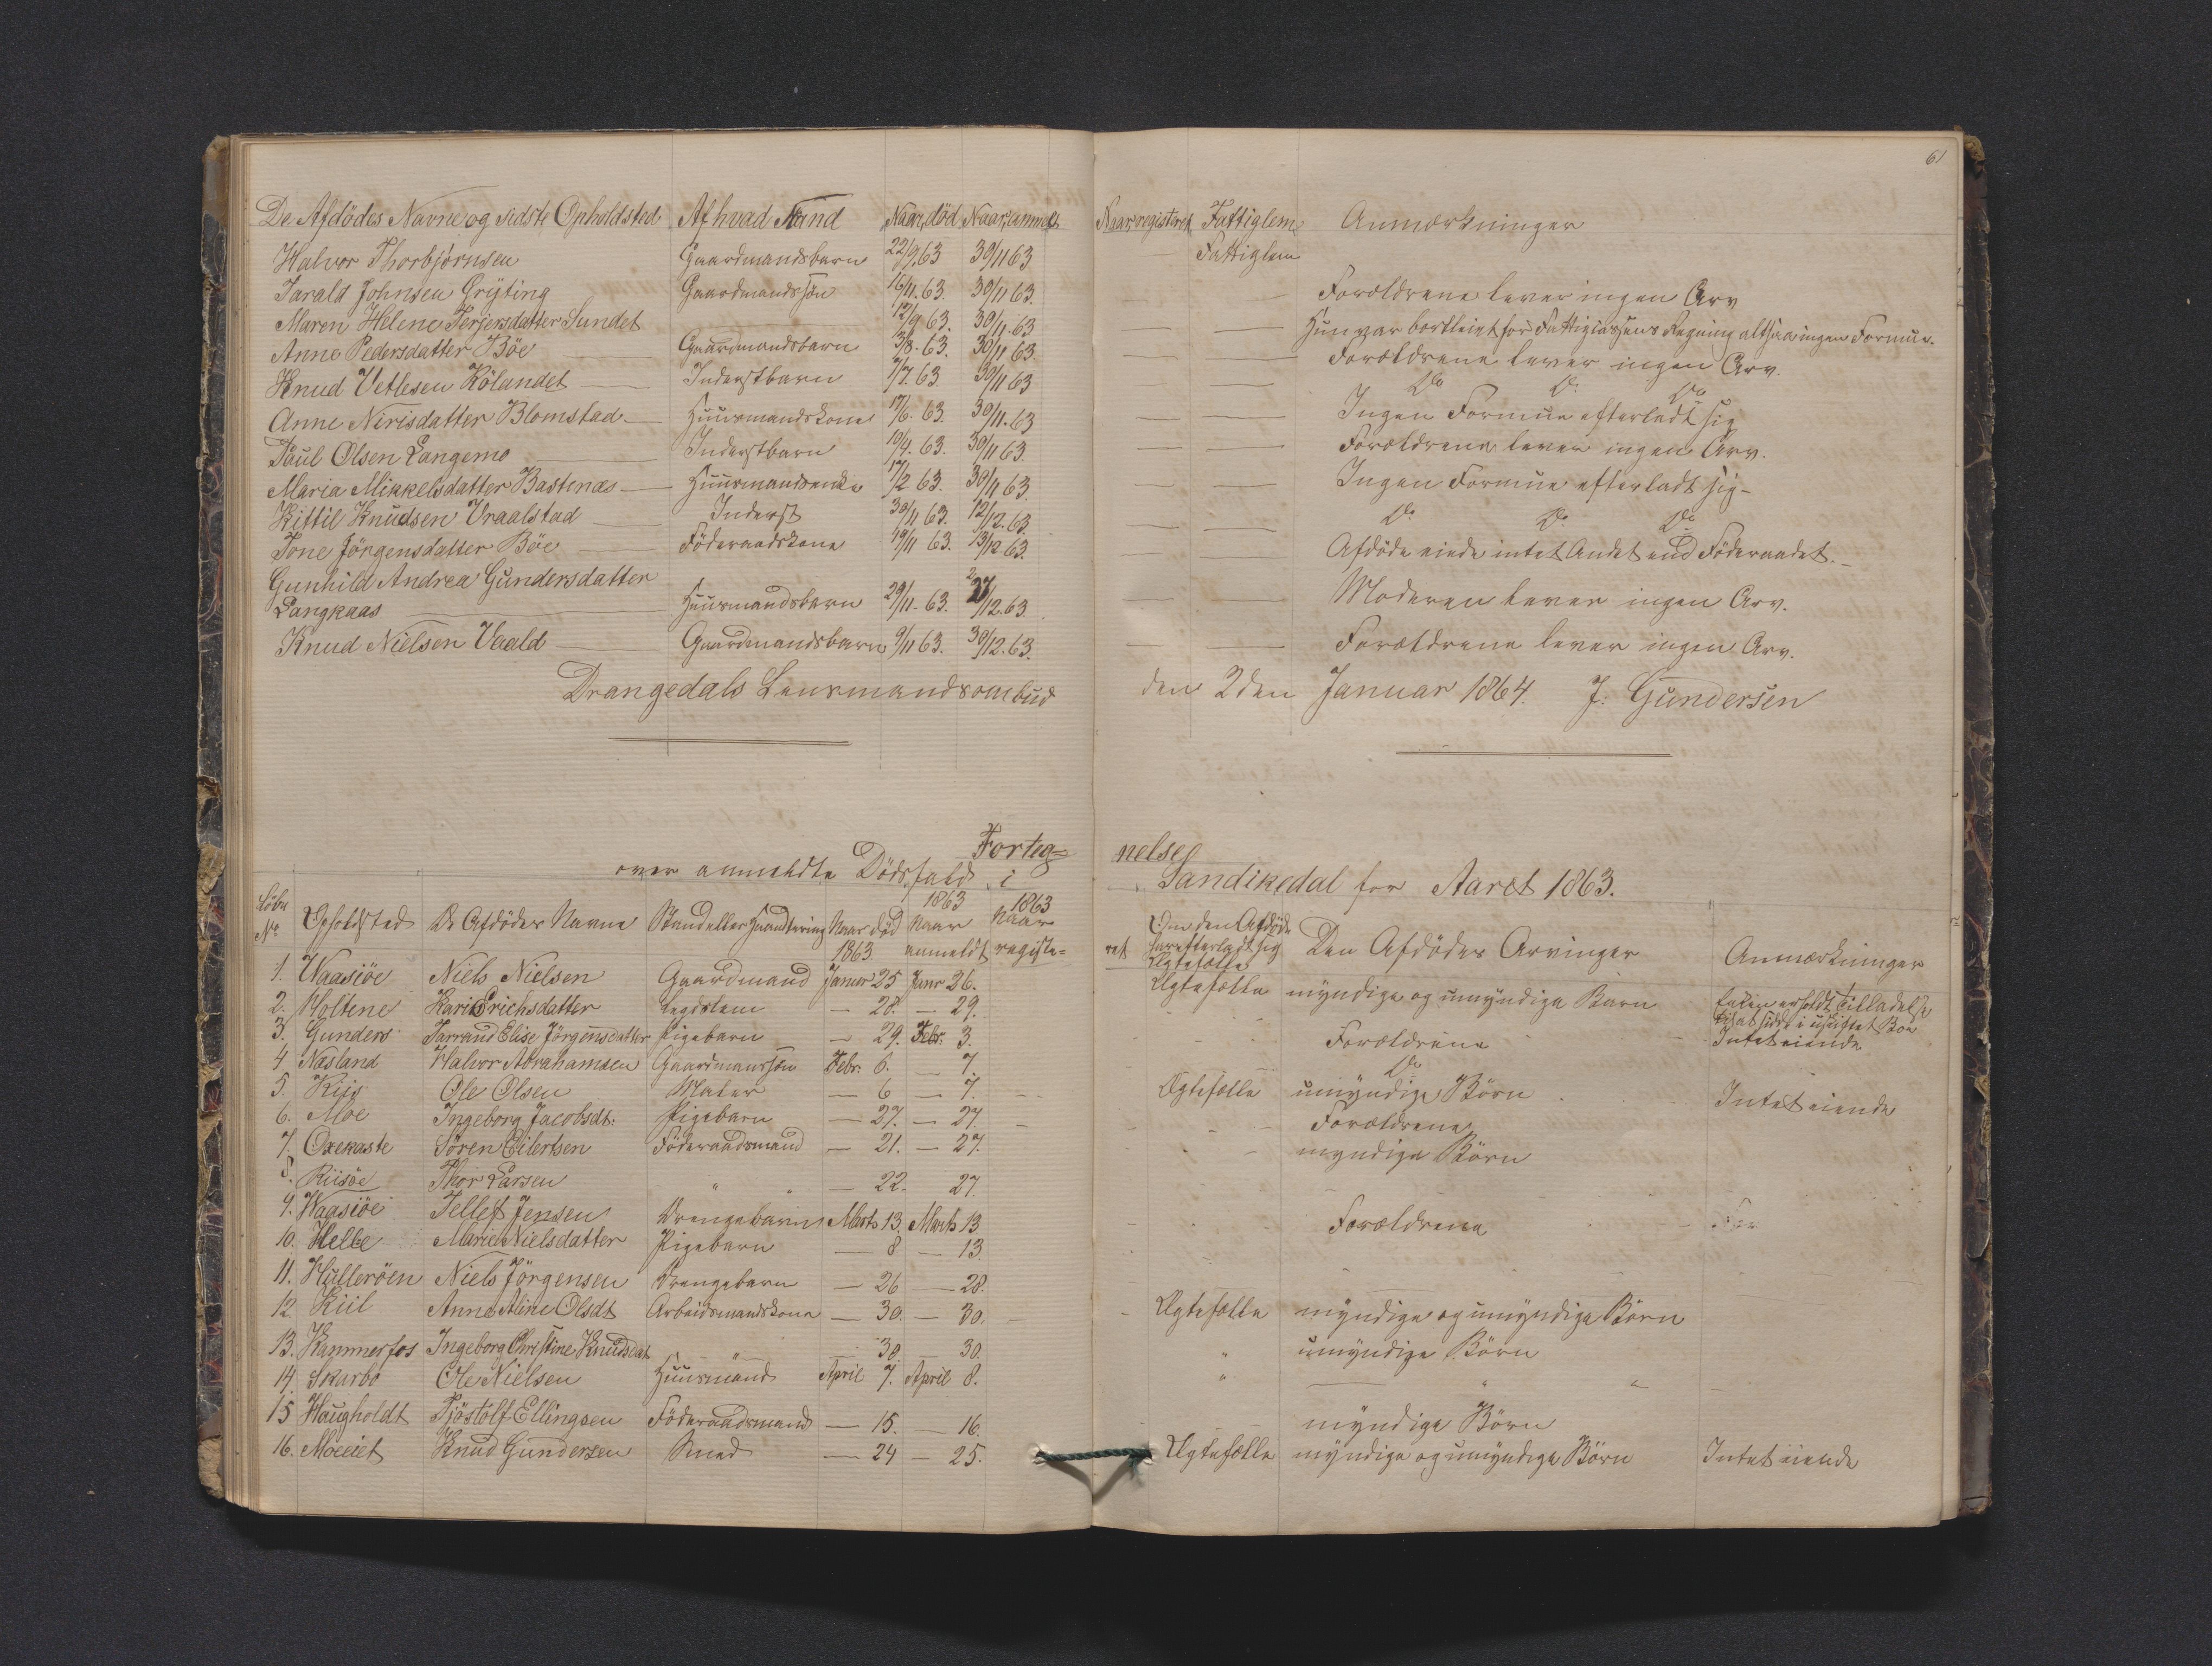 61
De Afdödes Navne og sidste Opholdsted Af hvad Stand Naar död Naar anmeldt Naar registeret Fattiglem Anmærkninger
Halvor Thorbjörnsen Gaardmandsbarn 22/9 63 30/11 63 Fattiglem
Tarald Johnsen Gryting Gaardmandssön 16/11. 63. 30/11 63. Forældrene lever ingen Arv
Maren Helene Terjersdatter Sundet 12/9 63. 30/11. 63 Hun var bortleiet for Fattigcassens Regning altsaa ingen Formue.
Anne Pedersdatter Böe Gaardmandsbarn 3/8. 63. 30/11 63. Forældrene lever ingen Arv.
Knud Vetlesen Kölandet Inderstbarn 7/7. 63. 30/11 63 Do Do Do
Anne Nirisdatter Blomstad Huusmandskone 17/6. 63. 30/11. 63 Ingen Formue efterladt sig
Paul Olsen Langemo Inderstbarn 10/4. 63. 30/11 63 Forældrene lever ingen Arv.
Maria Mikkelsdatter Bastnæs Huusmandsenke 17/2 63. 30/11 63. Ingen Formue efterladt sig
Kittil Knudsen Vraalstad Inderst 30/11 63. 12/12. 63. Do Do Do
Tone Jörgensdatter Böe Föderaadskone 19/11 63. 13/12 63. Afdöde eiede intet Andet end Föderaadet.
Gunhild Andrea Gundersdatter
Langkaas Huusmandsbarn 29/11. 63. 27/12. 63 Moderen lever ingen Arv.
Knud Nielsen Vaald Gaardmandsbarn 9/11 63. 30/12. 63. Forældrene lever ingen Arv.
Drangedals Lensmandsombud den 2den Januar 1864. J. Gundersen
Forteg= nelse
over anmeldte Dödsfald i Sandikedal for Aaret 1863.
Löbe No Opholdsted De Afdödes Navne Stand eller Haandtering Naar död 1863. 1863 Naar anmeldt 1863 Naar registe= ret Om den Afdöde har efterladt sig Ægtefælle Den Afdödes Arvinger Anmærkninger
1. Waasiöe Niels Nielsen Gaardmand Januar 25 Janr 26. Ægtefælle myndige og umyndige Barn Enken erholdt Tilladelse til at sidde i uskiftet Boe
2. Holtene Kari Erichsdatter Legdslem — 28. — 29. Intet eiende
3. Gunders Tarrand Elise Jörgensdatter Pigebarn — 29. Febr. 3. Forældrene
4 Næsland Halvor Abrahamsen Gaardmanssön Febr: 6. — 7. Do
5. Kiis Ole Olsen Maler — 6 — 7. Ægtefælle umyndige Börn Intet eiende
6. Moe Ingeborg Jacobsdt: Pigebarn — 27. — 27. Forældrene
7. Oxekaste Sören Eilertsen Föderaadsmand — 21. — 27. myndige Börn
8. Riisöe Thor Larsen " " — 22. 27.
9. Waasiöe Tellef Jensen Drengebarn Marts 13. Marts 13 Forældrene For
10. Helle Marie Nielsdatter Pigebarn — 8 — 13.
11. Hulleröen Niels Jörgensen Drengebarn — 26 — 28.
12 Kiil Anne Aline Olsdt Arbeidsmandskone — 30. — 30. Ægtefælle myndige og umyndige Börn
13. Kammerfos Ingeborg Christine Knudsdat " — 30. — 30. " umyndige Börn
14. Skarbo Ole Nielsen Huusmand April 7. April 8. " " "
15 Haugholdt Tjöstolf Ellingsen Föderaadsmand — 15. — 16. myndige Börn
16. Moeeiet Knud Gundersen Smed — 24 — 25. Ægtefælle myndige og umyndige Börn Intet eiende